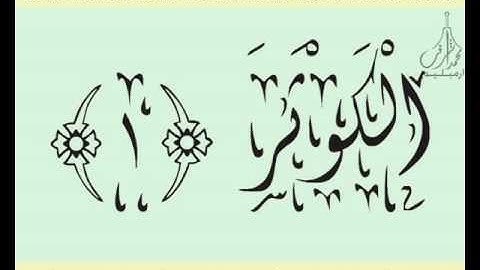 الْكَوْثَرَ ﴿١﴾